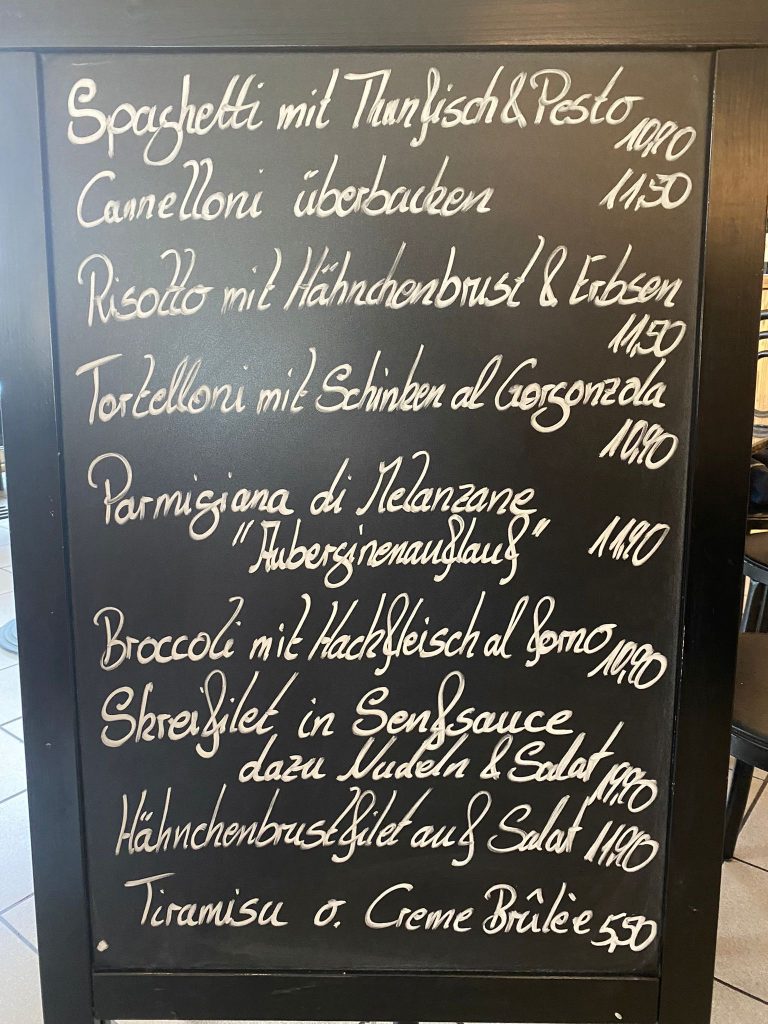 Spaghetti mit Thunfisch & Pesto
10,90
Cannelloni überbacken 11,50
Risotto mit Hähnchenbrust & Erbsen
11,50
Tortelloni mit Schinken al Gorgonzola
10,90
Parmigiana di Melanzane
"Auberginenauflauf" 11,90
Broccoli mit Hackfleisch al forno 10,90
Skreifilet in Senfsauce
dazu Nudeln & Salat 19,90
Hähnchenbrustfilet auf Salat 11,90
Tiramisu o. Creme Brûlèe 5,50